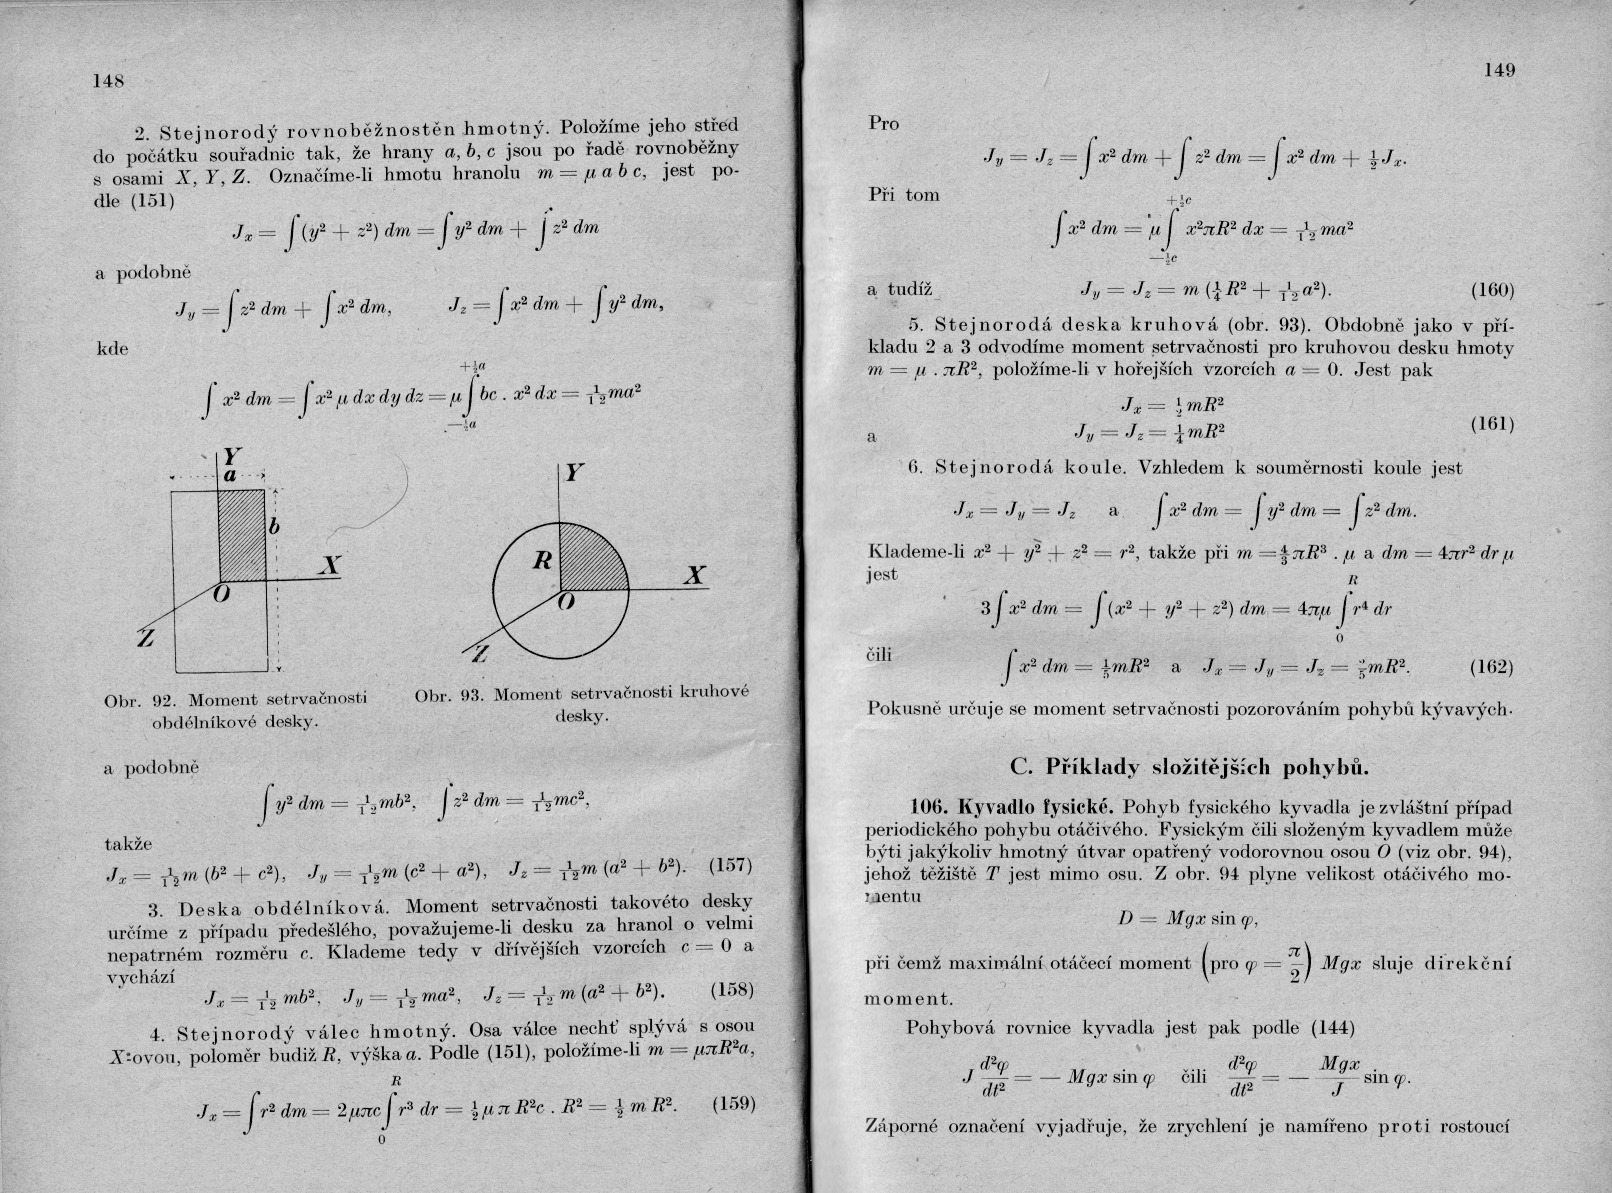 148
2. Stejnorodý rovnoběžnostěn hmotný. Položíme jeho střed
do počátku souřadnic tak, že hrany a, b, c jsou po řadě rovnoběžny
s osami X, Y, Z. Označíme-li hmotu hranolu m = μ a b c, jest po-
dle (151)
J_x = ∫(y² + z²) dm = ∫y² dm + ∫z² dm
a podobně
J_y = ∫z² dm + ∫x² dm, J_z = ∫x² dm + ∫y² dm,
kde
∫x² dm = ∫x² μ dx dy dz = μ ∫_{—½a}^{+½a} bc . x² dx = 1/12 ma²
Y
a
b
X
O
Z
Obr. 92. Moment setrvačnosti
obdélníkové desky.
Y
R
X
O
Z
Obr. 93. Moment setrvačnosti kruhové
desky.
a podobně
∫y² dm = 1/12 mb², ∫z² dm = 1/12 mc²,
takže
J_x = 1/12 m (b² + c²), J_y = 1/12 m (c² + a²), J_z = 1/12 m (a² + b²). (157)
3. Deska obdélníková. Moment setrvačnosti takovéto desky
určíme z případu předešlého, považujeme-li desku za hranol o velmi
nepatrném rozměru c. Klademe tedy v dřívějších vzorcích c = 0 a
vychází
J_x = 1/12 mb², J_y = 1/12 ma², J_z = 1/12 m (a² + b²). (158)
4. Stejnorodý válec hmotný. Osa válce nechť splývá s osou
X-ovou, poloměr budiž R, výška a. Podle (151), položíme-li m = μπR²a,
J_x = ∫r² dm = 2μπc ∫_0^R r³ dr = ½ μ π R²c . R² = ½ m R². (159)
149
Pro
J_y = J_z = ∫x² dm + ∫z² dm = ∫x² dm + ½ J_x.
Při tom
∫x² dm = μ ∫_{—½c}^{+½c} x²πR² dx = 1/12 ma²
a tudíž J_y = J_z = m (¼ R² + 1/12 a²). (160)
5. Stejnorodá deska kruhová (obr. 93). Obdobně jako v pří-
kladu 2 a 3 odvodíme moment setrvačnosti pro kruhovou desku hmoty
m = μ . πR², položíme-li v hořejších vzorcích a = 0. Jest pak
J_x = ½ mR²
a J_y = J_z = ¼ mR² (161)
6. Stejnorodá koule. Vzhledem k souměrnosti koule jest
J_x = J_y = J_z a ∫x² dm = ∫y² dm = ∫z² dm.
Klademe-li x² + y² + z² = r², takže při m = 4/3 πR³ . μ a dm = 4πr² dr μ
jest
3 ∫x² dm = ∫(x² + y² + z²) dm = 4πμ ∫_0^R r⁴ dr
čili
∫x² dm = 1/5 mR² a J_x = J_y = J_z = 2/5 mR². (162)
Pokusně určuje se moment setrvačnosti pozorováním pohybů kývavých.
C. Příklady složitějších pohybů.
106. Kyvadlo fysické. Pohyb fysického kyvadla je zvláštní případ
periodického pohybu otáčivého. Fysickým čili složeným kyvadlem může
býti jakýkoliv hmotný útvar opatřený vodorovnou osou O (viz obr. 94),
jehož těžiště T jest mimo osu. Z obr. 94 plyne velikost otáčivého mo-
mentu
D = Mgx sin φ,
při čemž maximální otáčecí moment (pro φ = π/2) Mgx sluje direkční
moment.
Pohybová rovnice kyvadla jest pak podle (144)
J d²φ/dt² = — Mgx sin φ čili d²φ/dt² = — Mgx/J sin φ.
Záporné označení vyjadřuje, že zrychlení je namířeno proti rostoucí